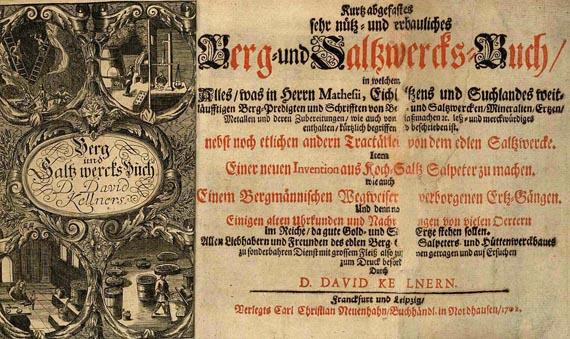 Berg
und
Saltzwercks Buch
D. David
Kellners.
Kurtz abgefastes
sehr nütz- und erbauliches
Berg- und Saltzwercks-Buch/
in welchem
Alles/ was in Herrn Mathesii, Eich tzens und Suchlandes weit-
läufftigen Berg-Predigten und Schrifften von - und Saltzwercken/ Mineralien, Ertzen/
Metallen und deren Zubereitungen/ wie auch von laßmachen ꝛc. und merckwürdiges
enthalten/ kürtzlich begriffen beschrieben ist.
nebst noch etlichen andern Tractätlei von dem edlen Saltzwercke.
Item
Einer neuen Invention aus Koch-Saltz Salpeter zu machen.
wie auch
Einem Bergmännischen Wegweiser verborgenen Ertz-Gängen.
Und denn
Einigen alten Uhrkunden und Nachr ngen von vielen Oertern
im Reiche/ da gute Gold- und Ertze stehen sollen.
Allen Liebhabern und Freunden des edlen Berg- Salpeters- und Hüttenwerckbaues
zu sonderbahren Dienst mit grossem Fleiß also zu nen getragen und auf Ersuchen
zum Druck beford
Durch
D. DAVID KE LNERN.
Franckfurt und Leipzig/
Verlegts Carl Christian Neuenhahn/ Buchhändl. in Nordhausen/ 1702.